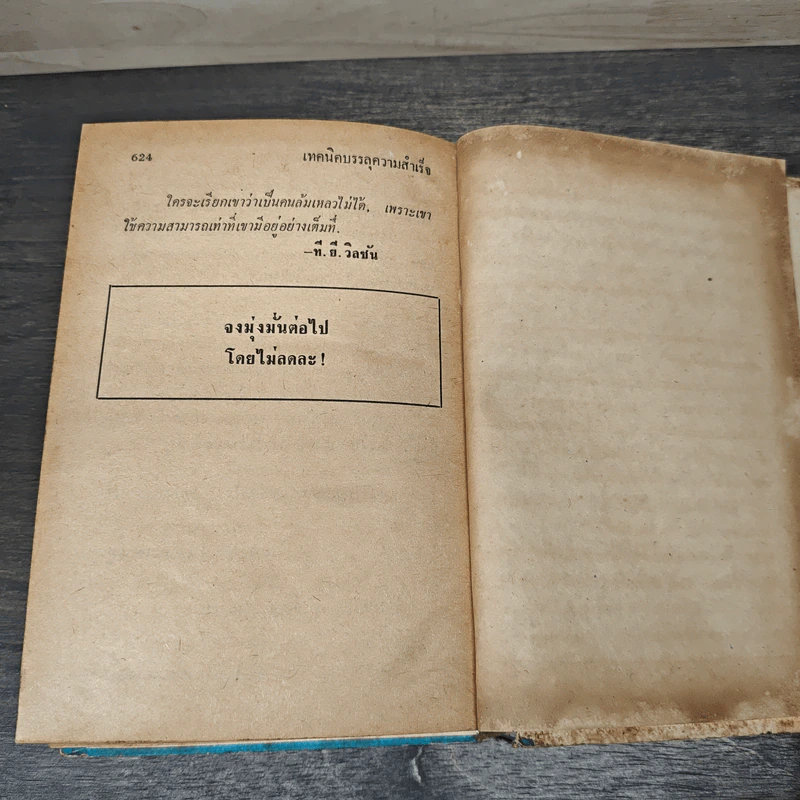 624 เทคนิคบรรลุความสำเร็จ
ใครจะเรียกเขาว่าเป็นคนล้มเหลวไม่ได้, เพราะเขา
ใช้ความสามารถเท่าที่เขามีอยู่อย่างเต็มที่.
—ที. ยี. วิลซัน
จงมุ่งมั่นต่อไป
โดยไม่ลดละ!